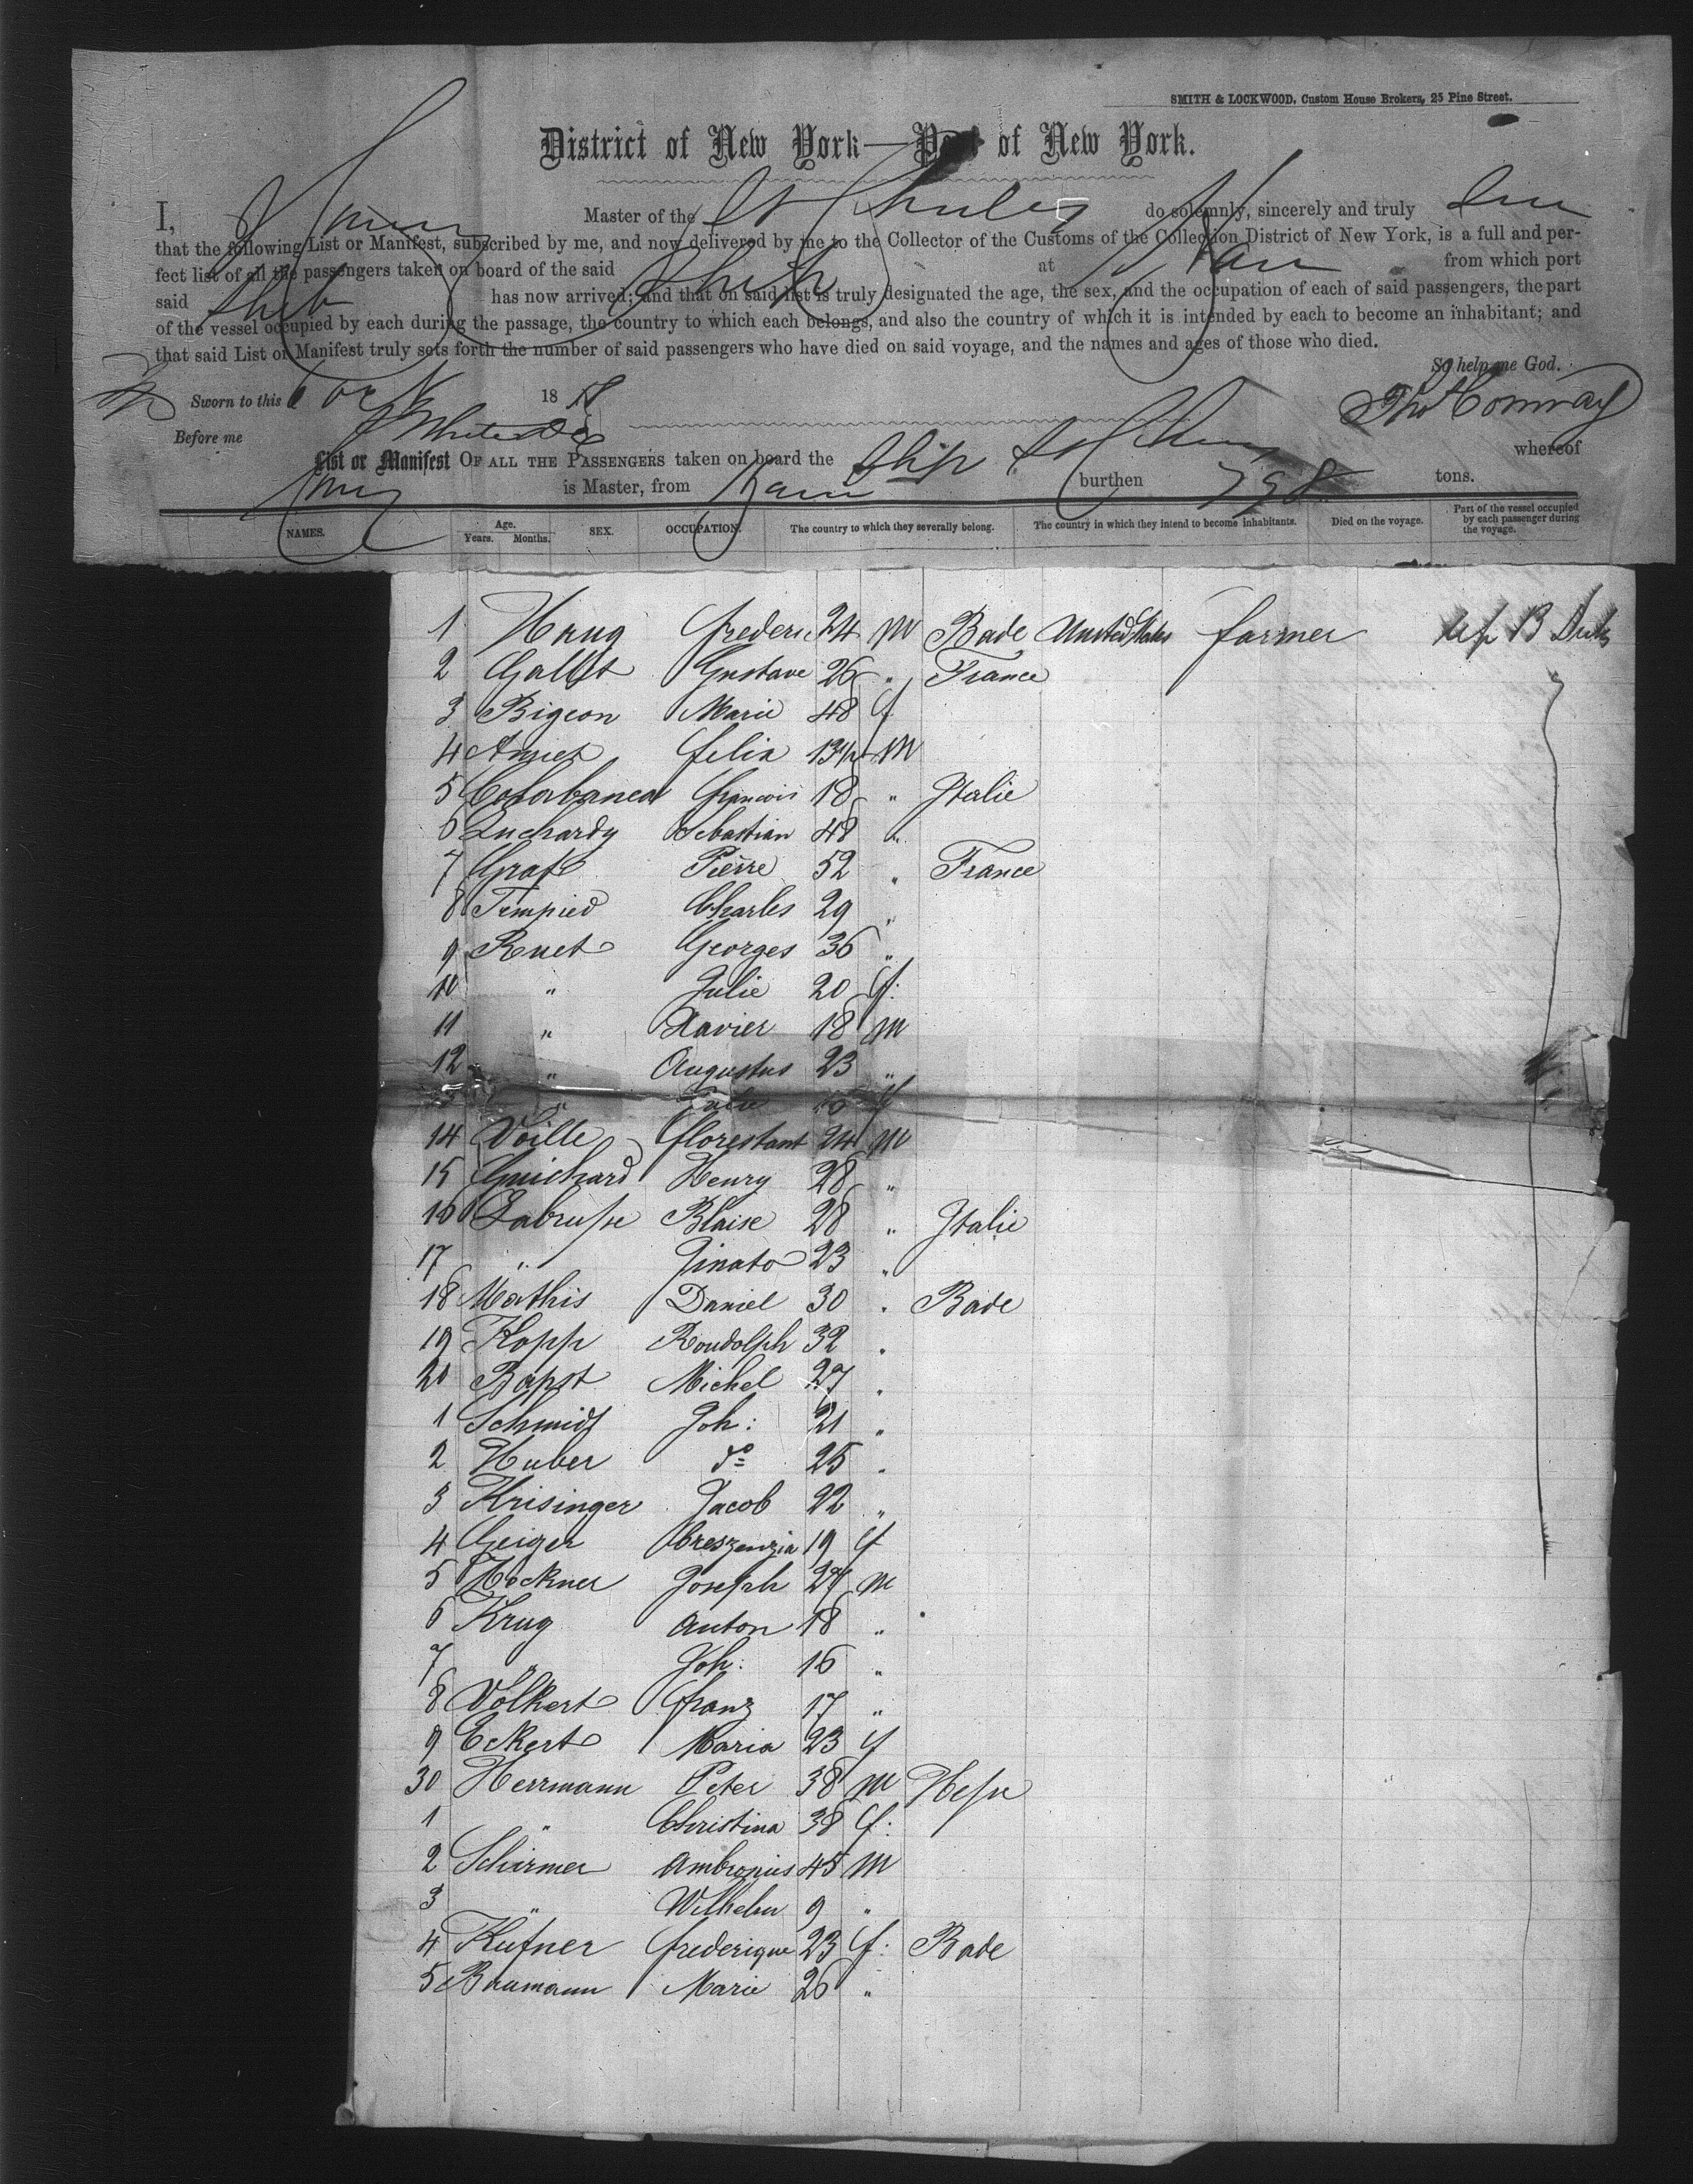 SMITH & LOCKWOOD, Custom House Brokers, 25 Pine Street.
District of New York—Port of New York.
I, Master of the St Charles do solemnly, sincerely and truly
that the following List or Manifest, subscribed by me, and now delivered by me to the Collector of the Customs of the Collection District of New York, is a full and per-
fect list of all the passengers taken on board of the said Ship at Havre from which port
said Ship has now arrived; and that on said list is truly designated the age, the sex, and the occupation of each of said passengers, the part
of the vessel occupied by each during the passage, the country to which each belongs, and also the country of which it is intended by each to become an inhabitant; and
that said List or Manifest truly sets forth the number of said passengers who have died on said voyage, and the names and ages of those who died.
So help me God.
Sworn to this 6 Oct 18
Thos Conway
Before me
List or Manifest OF ALL THE PASSENGERS taken on board the Ship St Charles whereof
is Master, from Havre burthen 798 tons.
NAMES. Age. Years. Months. SEX. OCCUPATION. The country to which they severally belong. The country in which they intend to become inhabitants. Died on the voyage. Part of the vessel occupied by each passenger during the voyage.
1 Haug frederic 24 m Bade United States farmer
2 Gallot Gustave 26 " France
3 Bigeon Marie 48 f
4 felix 13 m
5 françois 18 " Italie
6 Luchardy Sebastian 48 "
7 Graf Pierre 52 " France
8 Tempied Charles 29 "
9 Ruet Georges 36 "
10 " Julie 20 f:
11 " Xavier 18 m
12 " Augustus 23 "
" f
14 Voille florestant 24 m
15 Guichard Henry 28 "
16 Labruße Blaise 28 " Italie
17 " Ginato 23 "
18 Mathis Daniel 30 " Bade
19 Kopp Roudolph 32 "
20 Bapst Michel 27 "
1 Schmidt Joh: 21 "
2 Huber do 25 "
3 Krisinger Jacob 22 "
4 Geiger Creszenzia 19 f
5 Hockner Joseph 27 m
6 Krug Anton 18 "
7 " Joh: 16 "
8 Volkert franz 17 "
9 Eckert Maria 23 f
30 Herrmann Peter 38 m Heße
1 " Christina 38 f:
2 Schirmer Ambrosius 45 m
3 " Wilhelm 9 "
4 Kufner frederique 23 f: Bade
5 Baumann Marie 26 "